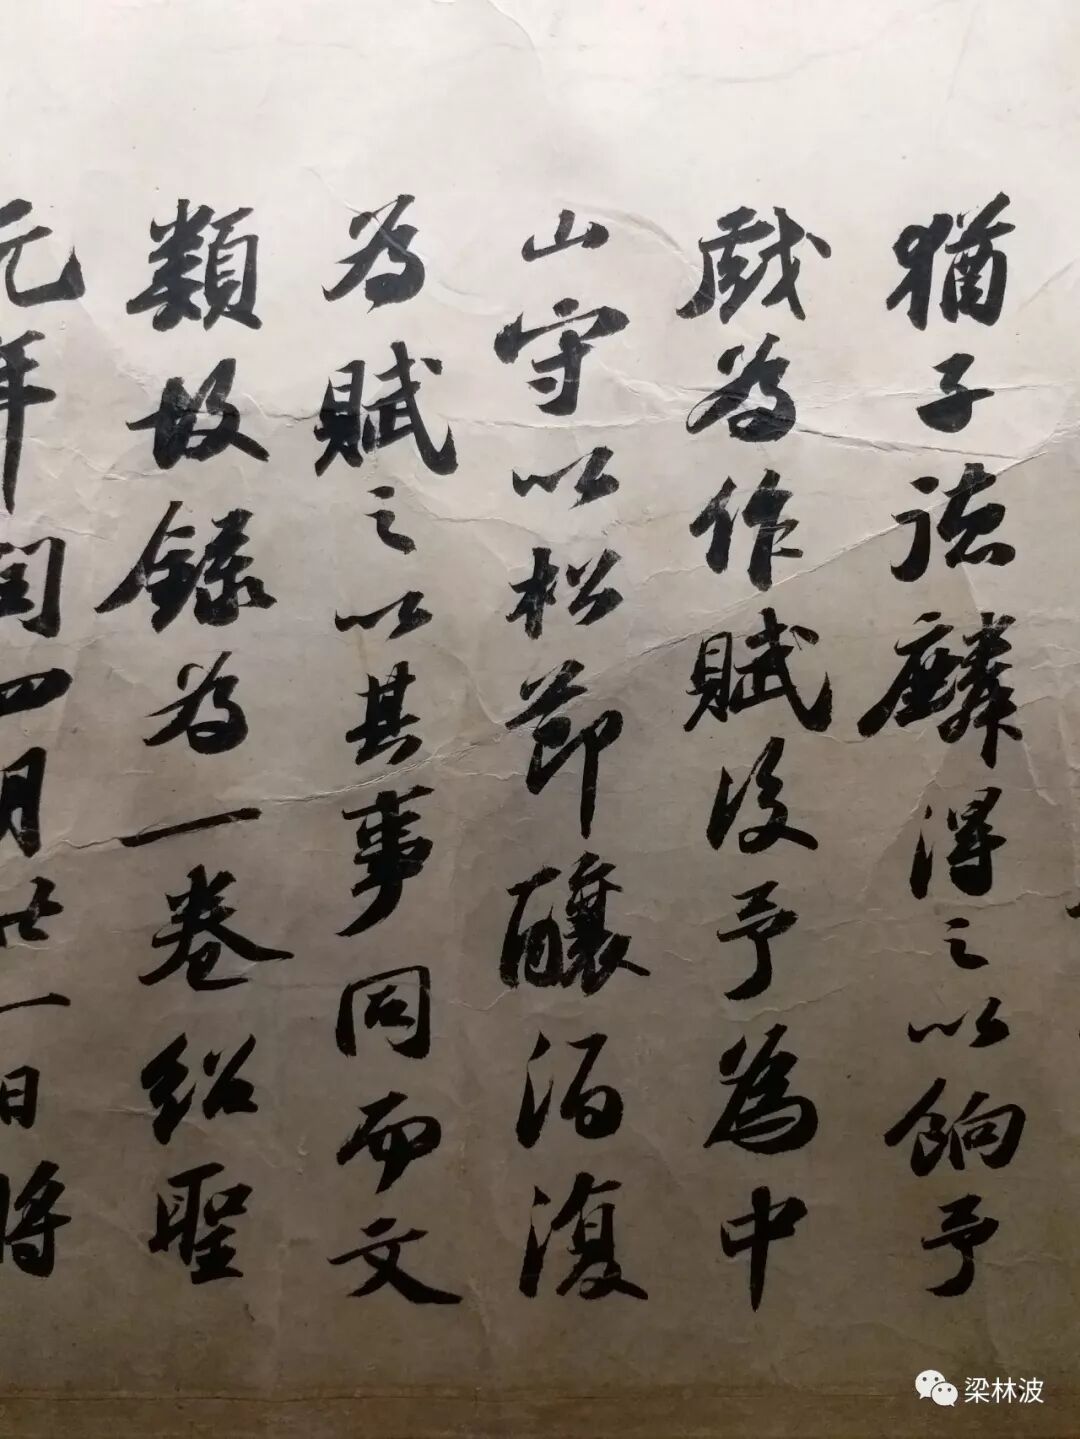 猶子德麟得之以餉予
戲為作賦後予為中
山守以松節釀酒復
為賦之以其事同而文
類故錄為一卷紹聖
元年閏四月廿一日將
梁林波